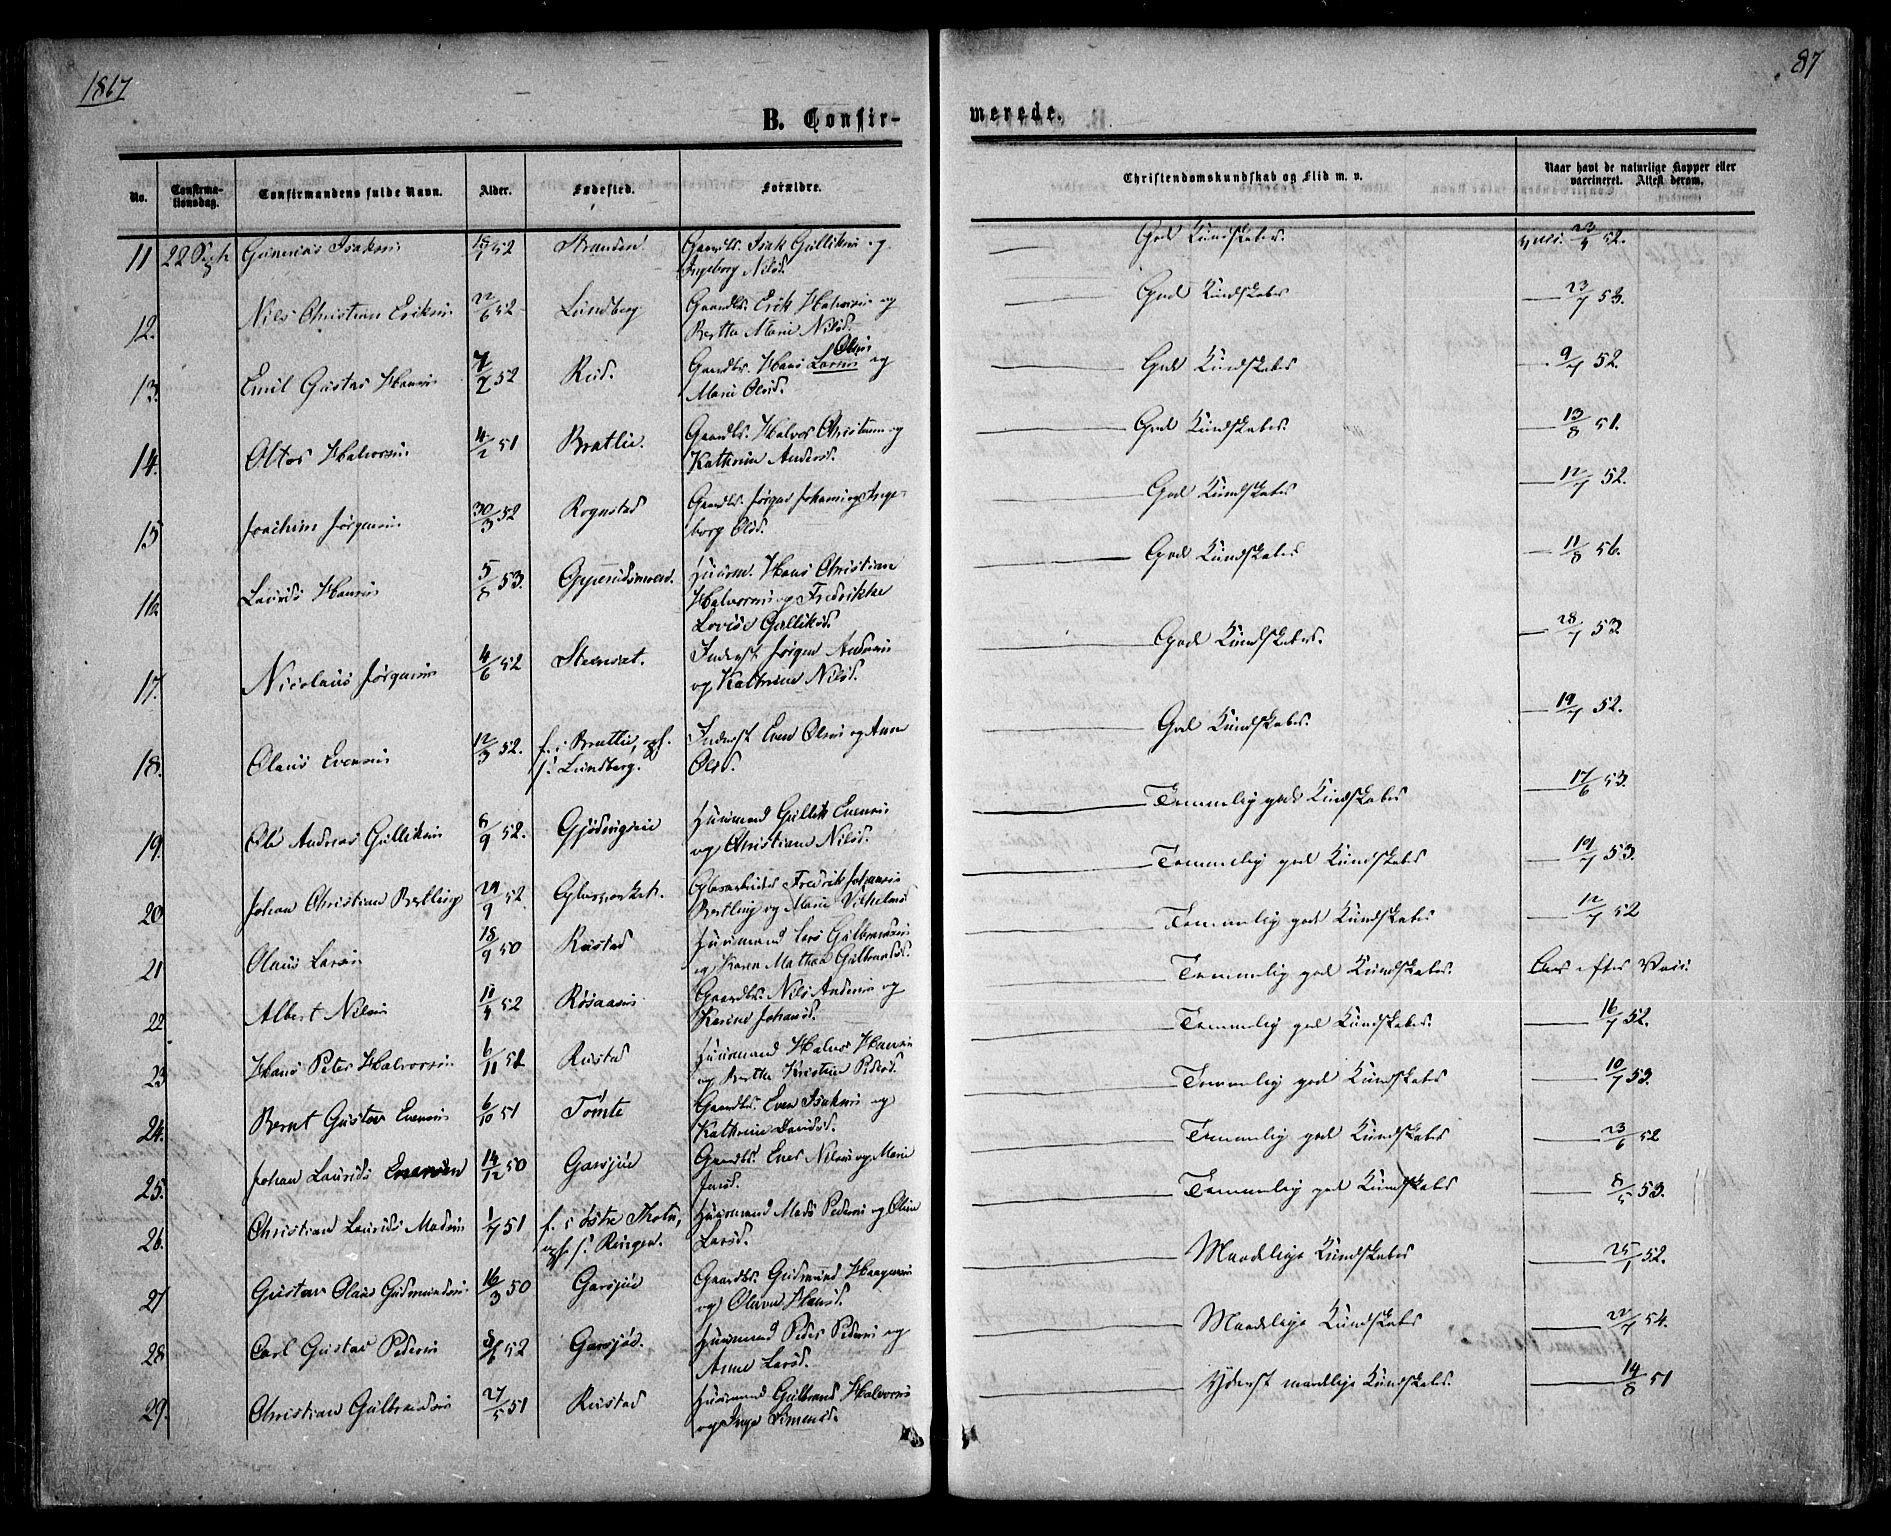 1867
87
B. Confir-
merede.
No.
Confirma-
tionsdag.
Confirmandens fulde Navn.
Alder.
Fødested.
Forældre.
Christendomskundskab og Flid m. v.
Naar havt de naturlige Kopper eller
vaccineret. Attest derom.
11 22 Sept. Isaksen 52 Stranden Gaardbr. Isak Gulliksen og
Ingeborg Nilsd. God Kundskaber. vacc. 52.
12. Nils Christian Eriksen 22/6 52 Lundberg Gaardbr. Erik Halvorsen og
Berthe Marie Nilsd. God Kundskaber 23/7 53.
13. Emil Gustav Hansen 52 Rud. Gaardbr. Hans Larsen Olsen og
Marie Olsd. God Kundskaber 9/7 52.
14. Halvorsen 4/2 51 Bratlie. Gaardbr. Halvor Christensen og
Kathrine Andersd. God Kundskaber 13/8 51.
15 Joachim Jørgensen 30/3 52 Rognstad Gaardbr. Jørgen Johansen og Inge-
borg Olsd. God Kundskaber 12/7 52.
16. Laurids Hansen 5/8 53. Huusm. Hans Christian
Halvorsen og Fredrikke
Lovise Gulliksd. God Kundskaber 11/8 56.
17. Nicolaus Jørgensen 4/6 52 Inderst Jørgen Andersen
og Kathrine Nilsd. God Kundskaber. 28/7 53
18. Olaus Evensen 12/3 52. f. i Bratlie, opf.
i Lundberg. Inderst Even Olsen og Anne
Olsd. God Kundskaber. 19/7 52.
19. Ole Andreas Gulliksen 8/9 52. Huusmand Gullik Evensen
og Christiane Nilsd. Temmelig god Kundskaber 17/6 53.
20 Johan Christian Bertling 29/9 52. Glasværket. Glasarbeider Fredrik Johansen
Bertling og Marie Vilhelmsd. Temmelig god Kundskaber 19/7 53.
21 Olaus Larsen 18/9 50 Rustad Huusmand Lars Gulbrandsen
og Karen Mathea Gulbrandsd. Temmelig god Kundskaber 12/7 52
22 Albert Nilsen 52 Røsaasen Gaardbr. Nils Andersen og
Karine Johansd. Temmelig god Kundskaber. efter
23 Hans Peter Halvorsen 6/11 52 Rustad Huusmand Halvor Hansen
og Berthe Kristine Pedersd. Temmelig god Kundskaber. 16/7 52.
24. Bernt Gustav Evensen 6/10 51 Tømte Gaardbr. Even Isaksen og
Kathrine Davidsd. Temmelig god Kundskaber. 10/7 53.
25. Johan Laurids Evensen 14/12 50 Garsjøe Gaardbr. Even Nilsen og Marie
Temmelig god Kundskaber 23/6 52
26. Christian Laurids Madsen 1/7 51 f. i Østre Thoten,
opf. i Ringen. Huusmand Mads Pedersen og Oline
Larsd. Temmelig god Kundskaber 8/5 53.
27 Gustav Olaus Gudmundsen 16/3 50 Garsjøe Gaardbr. Gudmund Haagensen
og Olava Hansd. Maadelige Kundskaber 25/1 52.
28 Carl Gustav Pedersen 52 Garsjøe. Huusmand Peder Pedersen og
Anne Larsd. Maadelige Kundskaber 22/7 54.
29. Christian Gulbrandsen 27/5 51 Rustad Huusmand Gulbrand Halvorsen
og Inge Simensd. Yderst maadelige Kundskaber. 14/8 51